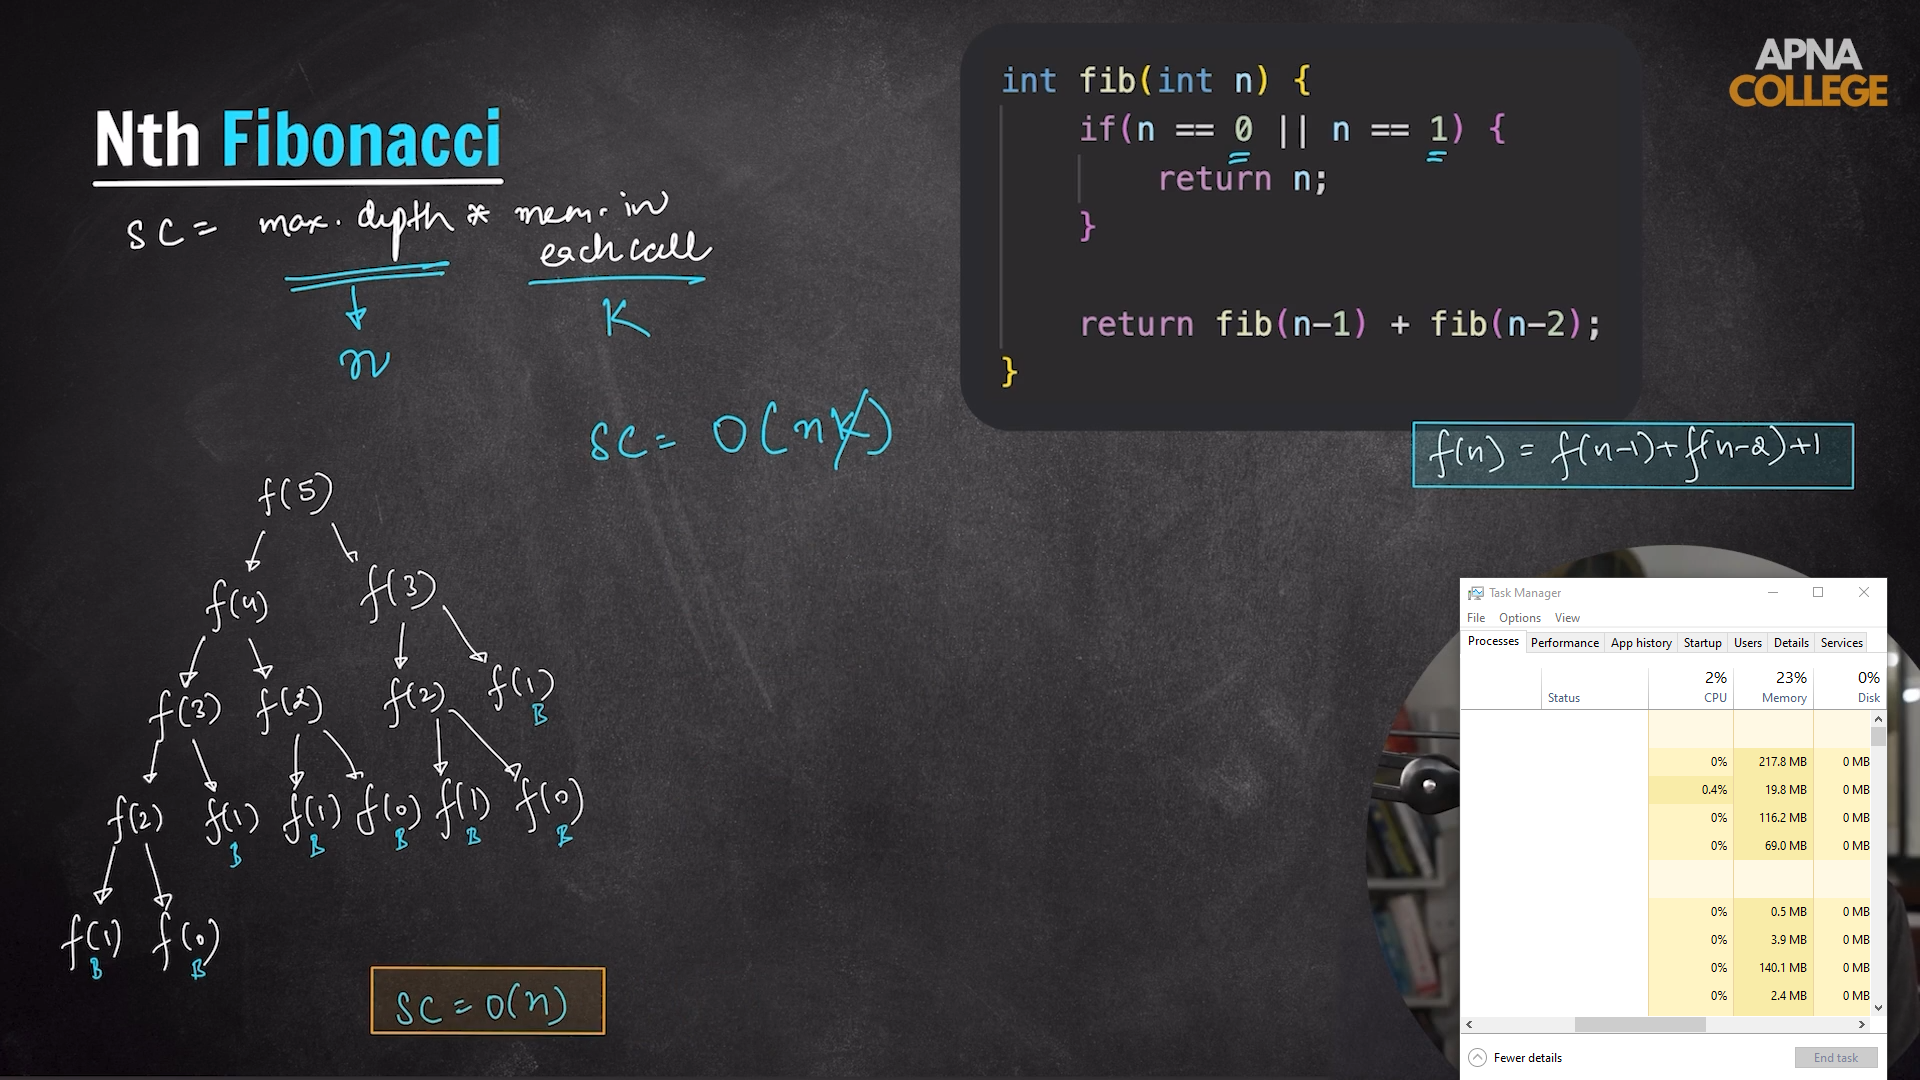 APNA
COLLEGE
Nth Fibonacci
SC = max. depth * mem. in
each call
n
K
SC = O(nK)
int fib(int n) {
if(n == 0 || n == 1) {
return n;
}
return fib(n-1) + fib(n-2);
}
f(n) = f(n-1)+f(n-2)+1
f(5)
f(4) f(3)
f(3) f(2) f(2) f(1)
B
f(2) f(1) f(1) f(0) f(1) f(0)
B B B B B
f(1) f(0)
B B
SC = O(n)
Task Manager
File Options View
Processes Performance App history Startup Users Details Services
2% 23% 0%
Status CPU Memory Disk
0% 217.8 MB 0 MB
0.4% 19.8 MB 0 MB
0% 116.2 MB 0 MB
0% 69.0 MB 0 MB
0% 0.5 MB 0 MB
0% 3.9 MB 0 MB
0% 140.1 MB 0 MB
0% 2.4 MB 0 MB
Fewer details End task